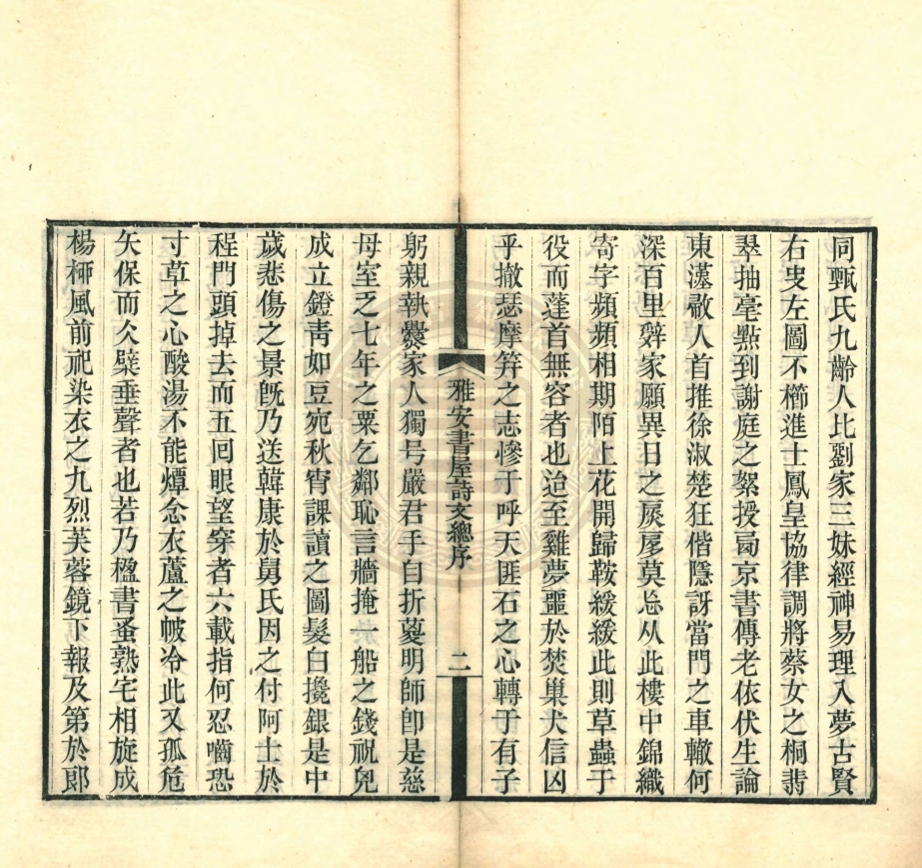 同甄氏九齡人比劉家三妹經神易理入夢古賢
右史左圖不櫛進士鳳皇協律調將蔡女之桐翡
翠抽毫點到謝庭之絮授曷京書傳老依伏生論
東漢敵人首推徐淑楚狂偕隱訝當門之車轍何
深百里辤家願異日之扊扅莫忘从此樓中錦織
寄字頻頻相期陌上花開歸鞍緩緩此則草蟲于
役而蓬首無容者也迨至雞夢噩於焚巢犬信囚
乎撤瑟摩笄之志慘于呼天匪石之心轉于有子
雅安書屋詩文總序
二
躬親執爨家人獨号嚴君手自折葼明師卽是慈
母室乏七年之粟乞鄰恥言牆掩一船之錢祝兕
成立鐙靑如豆宛秋宵課讀之圖髮白攙銀是中
歲悲傷之景旣乃送韓康於舅氏因之付阿士於
程門頭掉去而五回眼望穿者六載指何忍嚙恐
寸草之心酸湯不能燂念衣蘆之帔冷此又孤危
矢保而久檗垂聲者也若乃楹書蚤熟宅相旋成
楊桺風前祀染衣之九烈芙蓉鏡下報及第於郎